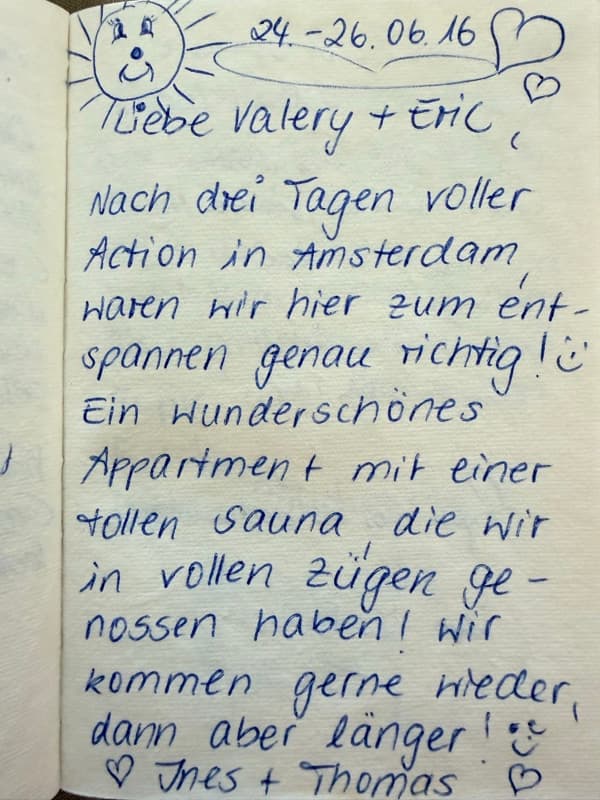 24.-26.06.16
Liebe Valery + Eric,
Nach drei Tagen voller
Action in Amsterdam,
waren wir hier zum ent-
spannen genau richtig!
Ein wunderschönes
Appartment mit einer
tollen Sauna, die wir
in vollen Zügen ge-
nossen haben! Wir
kommen gerne wieder,
dann aber länger!
Ines + Thomas